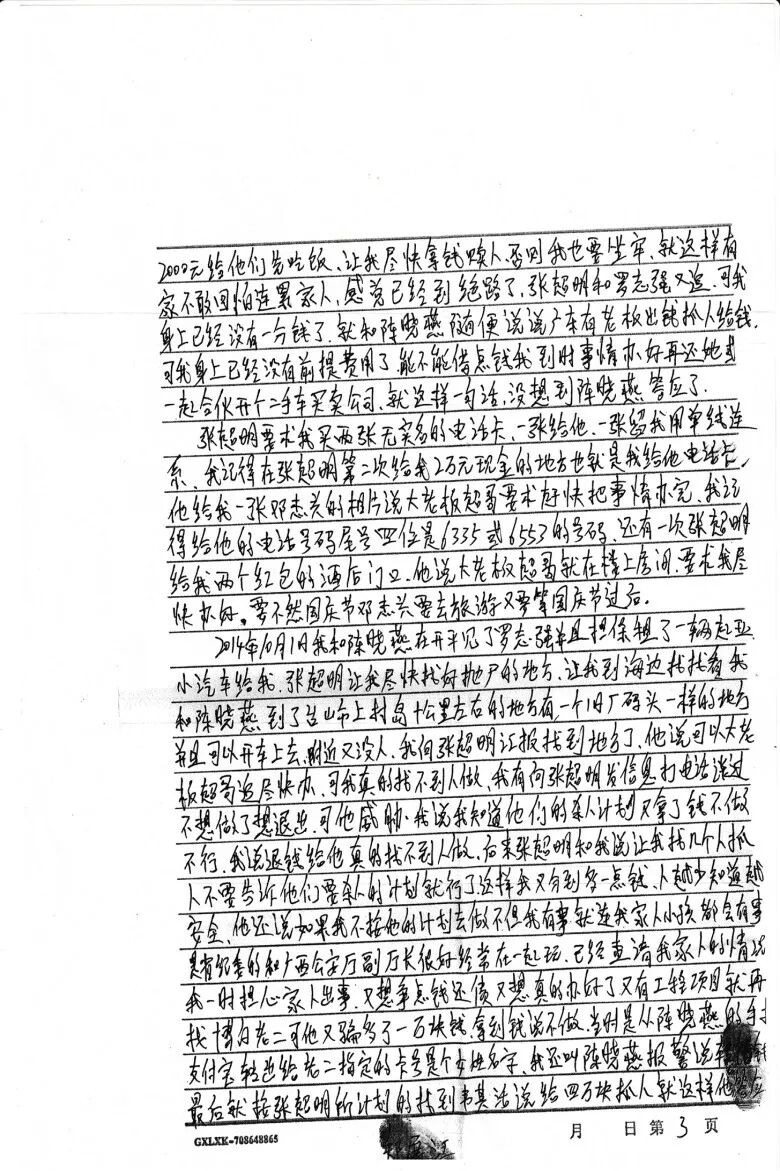 2000元给他们先吃饭、让我尽快拿钱赎人否则我也要坐牢、就这样有
家不敢回怕连累家人，感觉已经到绝路了、张超明和罗志强又追、可我
身上已经没有一分钱了、就和陈晓燕随便说说广东有老板出钱抓人给钱、
可我身上已经没有前提费用了、能不能借点钱我到时事情办好再还她或
一起合伙开个二手车买卖公司、就这样一句话、没想到陈晓燕答应了.
张超明要求我买两张无实名的电话卡、一张给他、一张留我用单线连
系、我记得在张超明第二次给我2万元现金的地方也就是我给他电话卡、
他给我一张邓志兴的相片说大老板超哥要求好快把事情办完、我记
得给他的电话号码尾号四位是6335或6553的号码、还有一次张超明
给我两个红包的酒店门口、他说大老板超哥就在楼上房间、要求我尽
快办好、要不然国庆节邓志兴要去旅游又要等国庆节过后。
2014年10月1日我和陈晓燕在开平见了罗志强并且担保租了一辆起亚
小汽车给我、张超明让我尽快找好抛尸的地方、让我到海边找找看我
和陈晓燕到了台山市上村岛十公里左右的地方有一个旧厂码头一样的地方
并且可以开车上去、附近又没人、我向张超明汇报找到地方了、他说可以大老
板超哥追尽快办、可我真的找不到人做、我有向张超明发信息打电话说过
不想做了想退出、可他威胁、我说我知道他们的杀人计划又拿了钱不做
不行、我说退钱给他真的找不到人做、后来张超明和我说让我找几个人抓
人不要告诉他们要杀人的计划就行了这样我又分到多一点钱、人越少知道越
安全、他还说如果我不按他的计划去做不但我有事就连我家人小孩都会有事
是有纪委的和广西公安厅副厅长很好经常在一起玩、已经查清我家人的情况
我一时担心家人出事、又想争点钱还债又想真的办好了又有工程项目就再
找博白老二可他又骗多了一万块钱、拿到钱说不做、当时是从陈晓燕的手
支付宝转过给老二指定的卡号是个女姓名字、我还叫陈晓燕报警说
最后就按张超明所计划的找到韦其洁说给四万块抓人就这样他
GXLXK-708648865
月 日 第 3 页